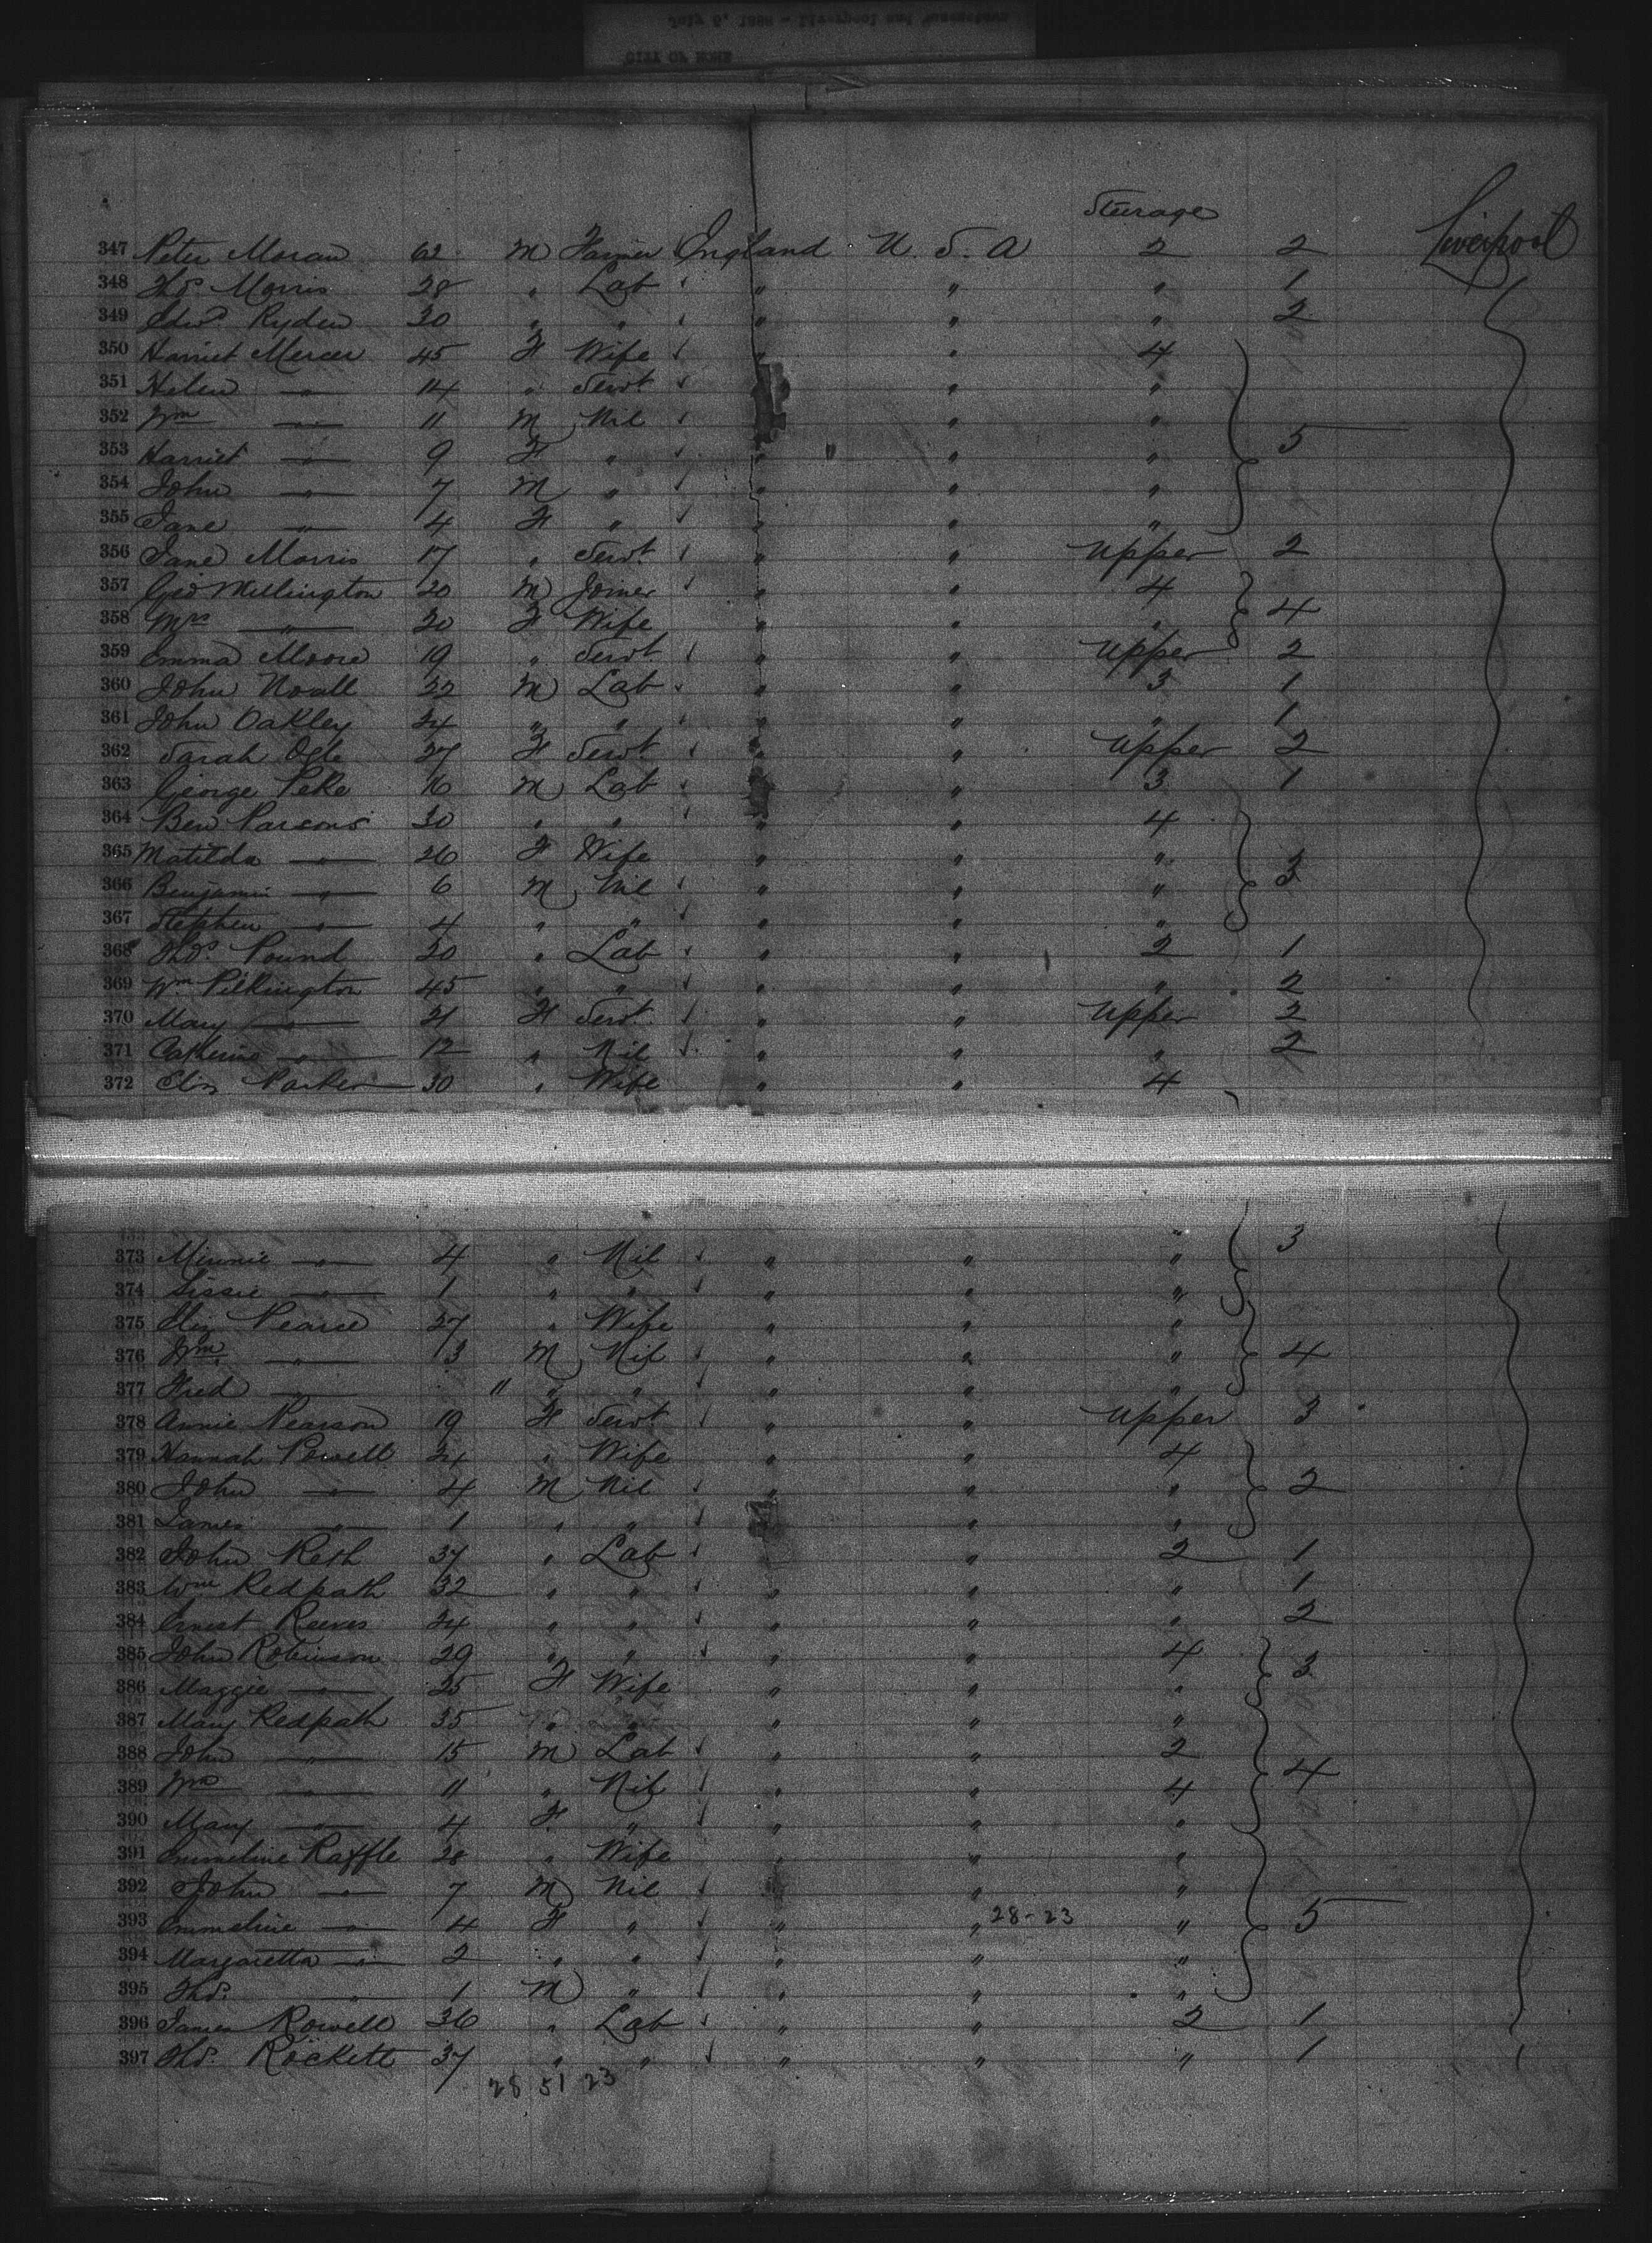 Steerage
347 Peter Moran 62 M Farmer England U. S. A 2 2 Liverpool
348 Thos. Morris 28 " Lab " " " 1
349 Edwd. Ryden 30 " " " " " 2
350 Harriet Mercer 45 F Wife " " 4
351 Helen " 14 " Servt. " " "
352 Wm " 11 M Nil " " 5
353 Harriet " 9 F " " " "
354 John " 7 M " " " "
355 Jane " 4 F " " " "
356 Jane Morris 17 " Servt. " " Upper 2
357 Geo Millington 20 M Joiner " " 4
358 Mrs " 20 F Wife " " " 4
359 Emma Moore 19 " Servt. " " Upper 2
360 John Noall 22 M Lab " " 3 1
361 John Oakley 24 " " " " " 1
362 Sarah Ogle 27 F Servt. " " Upper 2
363 George Peke 16 M Lab " " 3 1
364 Ben Parsons 30 " " " " 4
365 Matilda " 26 F Wife " " "
366 Benjamin " 6 M Nil " " " 3
367 Stephen " 4 " " " " "
368 Thos. Pound 20 " Lab " " 2 1
369 Wm Pilkington 45 " " " " " 2
370 Mary " 21 F Servt. " " Upper 2
371 Catherine " 12 " Nil " " " 2
372 Eliz Parker 30 " Wife " " 4
373 Minnie " 4 " Nil " " " 3
374 Lissie " 1 " " " " "
375 Eliz Pearce 27 " Wife " " "
376 Wm. " 13 M Nil " " " 4
377 Fred " 11 " " " " "
378 Annie Pearson 19 F Servt " " Upper 3
379 Hannah Powell 24 " Wife " " 4
380 John " 4 M Nil " " " 2
381 James " 1 " " " " "
382 John Reth 37 " Lab " " 2 1
383 Wm Redpath 32 " " " " " 1
384 Ernest Reeves 24 " " " " " 2
385 John Robinson 29 " " " " 4
386 Maggie " 25 F Wife " " " 3
387 Mary Redpath 35 " " " " "
388 John " 15 M Lab " " 2
389 Wm " 11 " Nil " " 4 4
390 Mary " 4 F " " " "
391 Emmeline Raffle 28 " Wife " " "
392 John " 7 M Nil " " "
393 Emmeline " 4 F " " " 28-23 " 5
394 Margaretta " 2 " " " " "
395 Thos. " 1 M " " " "
396 James Rowell 36 " Lab " " 2 1
397 Thos. Rockett 37 " " " " " 1
28 51 23